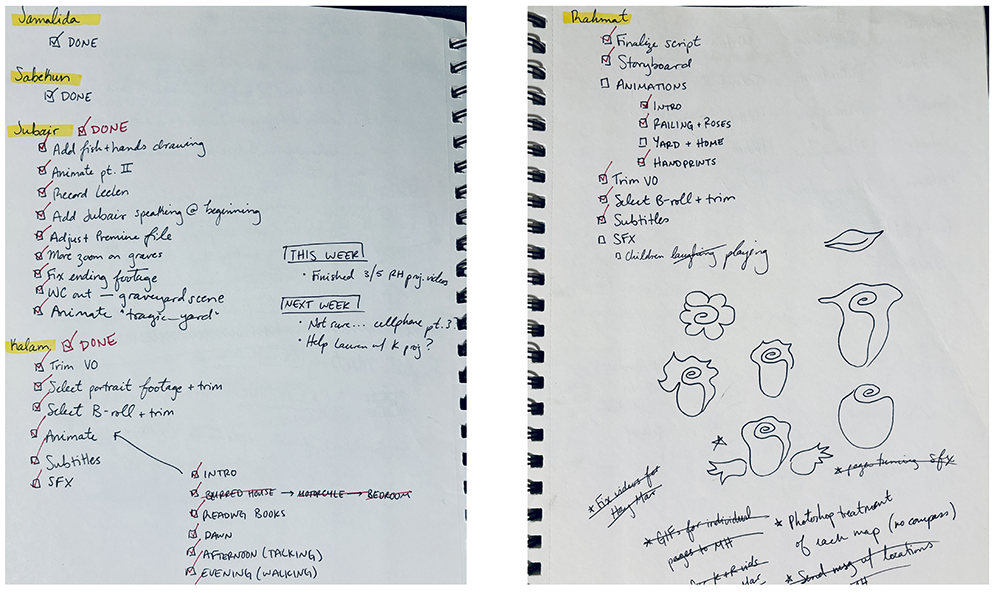 Jamalida
DONE
Sabekun
DONE
Jubair DONE
Add fish+hands drawing
Animate pt. II
Record Leelen
Add Jubair speaking @ beginning
Adjust Premire file
More zoom on graves
Fix ending footage
WC out — graveyard scene
Animate "tragic_yard"
THIS WEEK
• Finished 3/5 RH proj. videos
NEXT WEEK
• Not sure... cellphone pt. 3?
• Help Lauren w/ K proj?
Kalam DONE
Trim VO
Select portrait footage + trim
Select B-roll + trim
Animate
Subtitles
SFX
INTRO
→ MOTORCYCLE → BEDROOM
READING BOOKS
DAWN
AFTERNOON (TALKING)
EVENING (WALKING)
Rahmat
Finalize script
Storyboard
ANIMATIONS
INTRO
RAILING + ROSES
YARD + HOME
HANDPRINTS
Trim VO
Select B-roll + trim
Subtitles
SFX
Children laughing playing
* page turning SFX
* Fix videos for
Hay Mar
* GIFs for individual
pages to MH
* Photoshop treatment
of each map (no compass)
* Send msg of locations